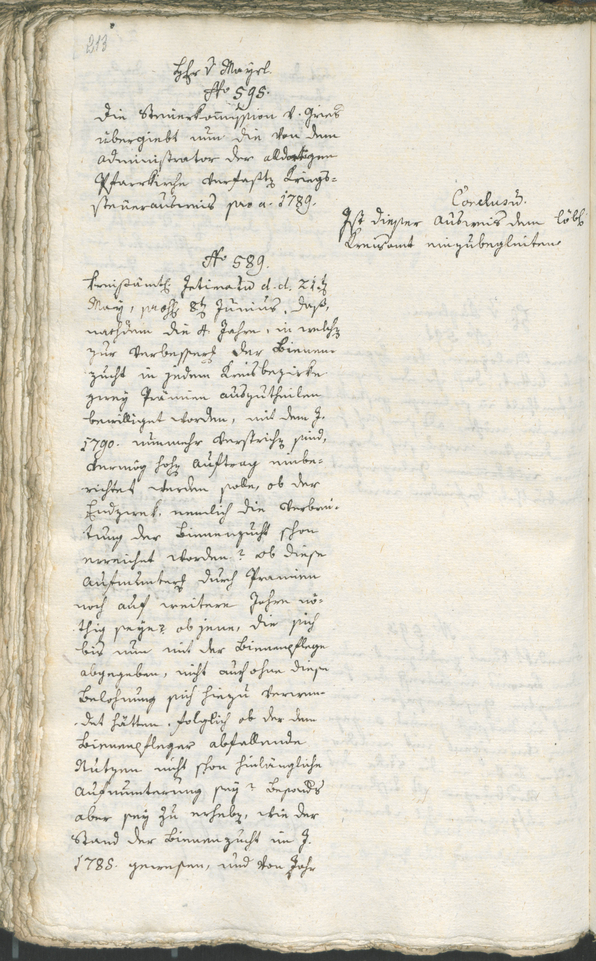 213
Hr v Mayrl.
No 595.
Die Steuerkommission v. Gries
übergiebt nun die von dem
Administrator der alldortigen
Pfarrkirche verfaßte Kriegs-
steuerausweis pro a. 1789.
Conclusum.
Ist dieser Ausweis dem löbl.
Kreisamt einzubegleiten
No 589.
Kreisämtl. Intimatum d.d. 21t
May, 8t Junius, daß,
nachdem die 4 Jahre, in welch
zur Verbesser der Bienen-
zucht in jedem Kreisbezirke
zwey Prämien auszutheilen
bewilliget worden, mit dem J.
1790. nunmehr verstrich sind,
vermög hoh Auftrag einbe-
richtet werden solle, ob der
Endzweck, nemlich die Verbrei-
tung der Bienenzucht schon
erreichet worden? ob diese
Aufmunter durch Praemien
noch auf weitere Jahre nö-
thig seye? ob jene, die sich
bis nun mit der Bienenpflege
abgegeben, nicht auch ohne diese
Belohnung sich hiezu verwen-
det hätten, folglich ob der dem
Bienenpfleger abfallende
Nutzen nicht schon hinlängliche
Aufmunterung sey? Besonds
aber sey zu erheb, wie der
Stand der Bienenzucht im J.
1785. gewesen, und von Jahr